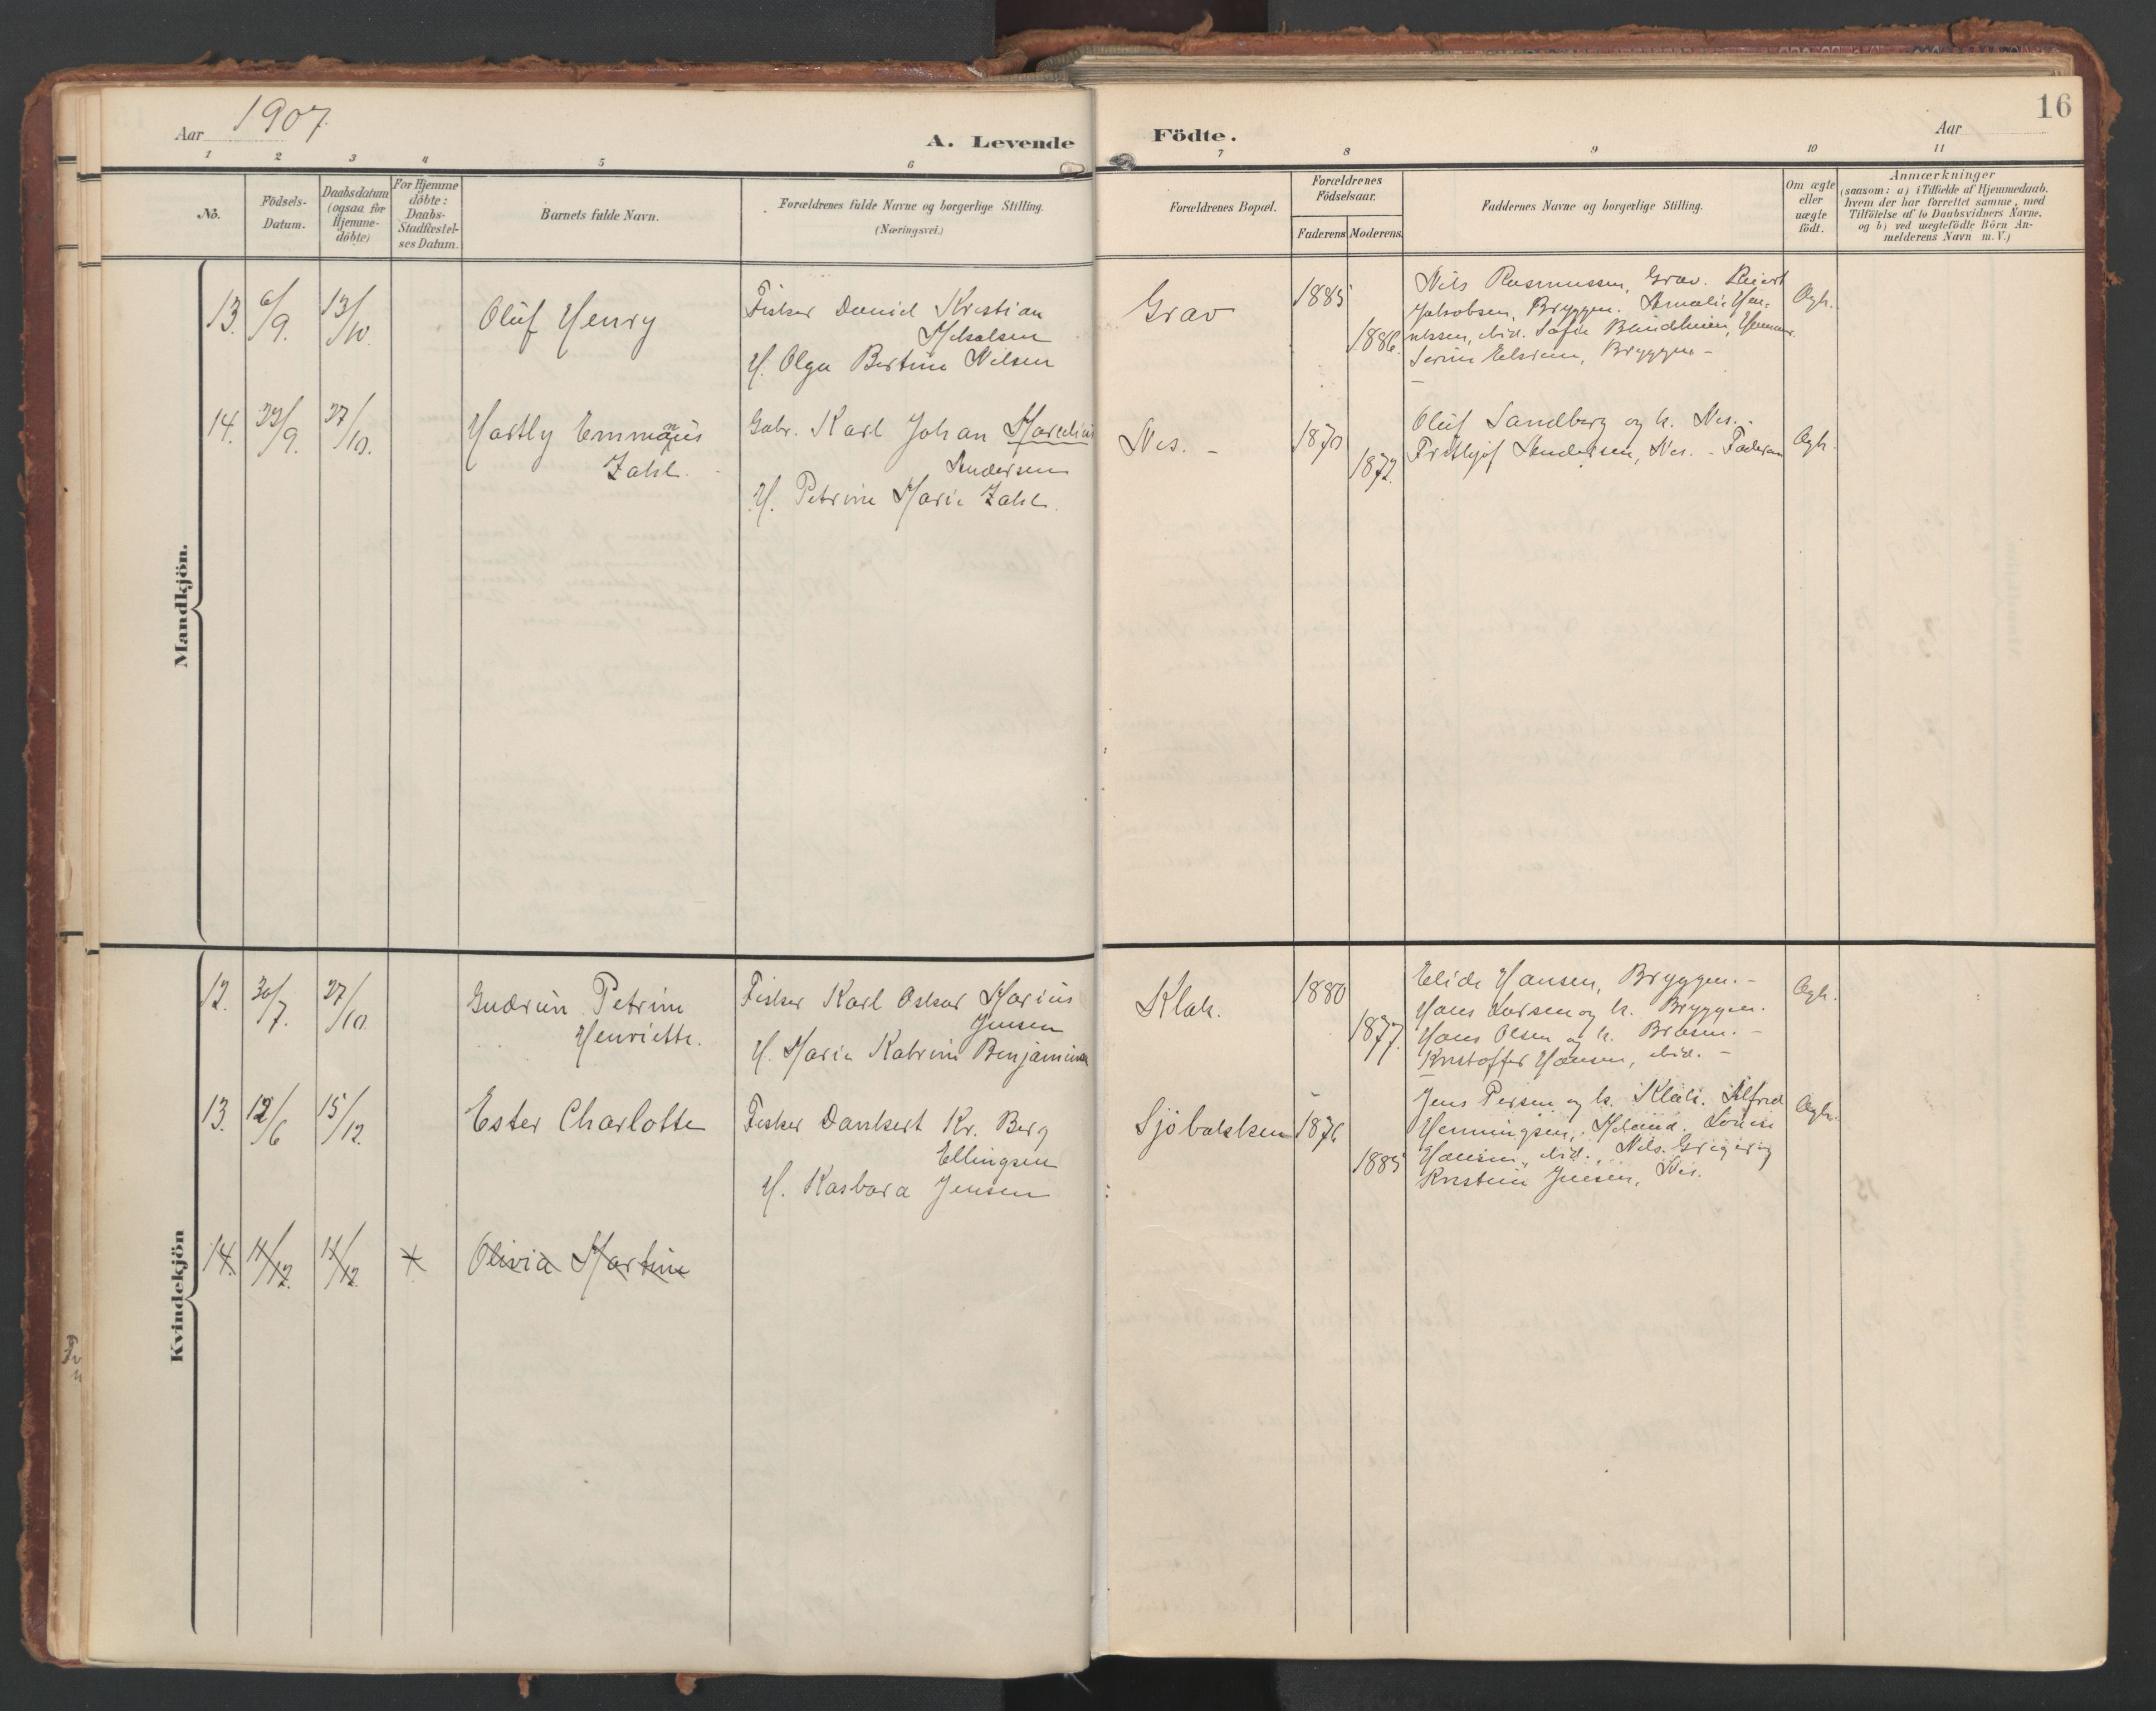 16
Aar 1907
A. Levende Födte.
Aar
1 2 3 4 5 6 7 8 9 10 11
No.
Födsels-
Datum.
Daabsdatum
(ogsaa for
Hjemme-
döbte)
For Hjemme
döbte:
Daabs-
Stadfæstel-
ses Datum.
Barnets fulde Navn.
Forældrenes fulde Navne og borgerlige Stilling.
(Næringsvei.)
Forældrenes Bopæl.
Forældrenes
Födselsaar.
Faderens Moderens
Faddernes Navne og borgerlige Stilling.
Om ægte
eller
uægte
födt.
Anmærkninger
(saasom: a) i Tilfælde af Hjemmedaab.
hvem der har forrettet samme, med
Tilföielse af to Daabsvidners Navne,
og b) ved uægtefödte Börn An-
melderens Navn m. V.)
Mandkjön.
13. 6/9. 13/10.
Oluf Henry
Fisker Daniel Kristian
H. Olga Bertine Nilsen
Grav
1885
1886.
Nils Rasmussen, Grav.
Jakobsen, Bryggen. Amalie
ibid. Sofie
Bryggen. -
Ægte.
14. 22/9. 27/10.
Hartly Emmanus
Zahl.
Gbr. Karl Johan Marelius
Andersen
H. Petrine Marie Zahl.
Nes. -
1870
1872.
Oluf Sandberg og h. Nes. -
Frithjof Andersen, Nes. - Faderen
Ægte.
Kvindekjön
12. 30/7. 27/10.
Gudrun Petrine
Henriette.
Fisker Karl Oskar Marius
Jensen
H. Marie Katrine Benjaminsen
Klak.
1880
1877.
Elide Hansen, Bryggen. -
Hans Larsen og h. Bryggen.
Hans Olsen og h. Bråsen. -
Kristoffer Hansen, ibid. -
Ægte.
13. 12/6 15/12.
Ester Charlotte
Fisker Dankert Kr. Berg
Ellingsen
H. Kasbara Jensen
Sjöbakken
1876
1885
Jens Persen og h. Klak. Alfred
Henningsen, Louise
Hansen, ibid., Nils
Kristine Jensen, Nes.
Ægte.
14. 11/12. 11/12.
Olivia Martine